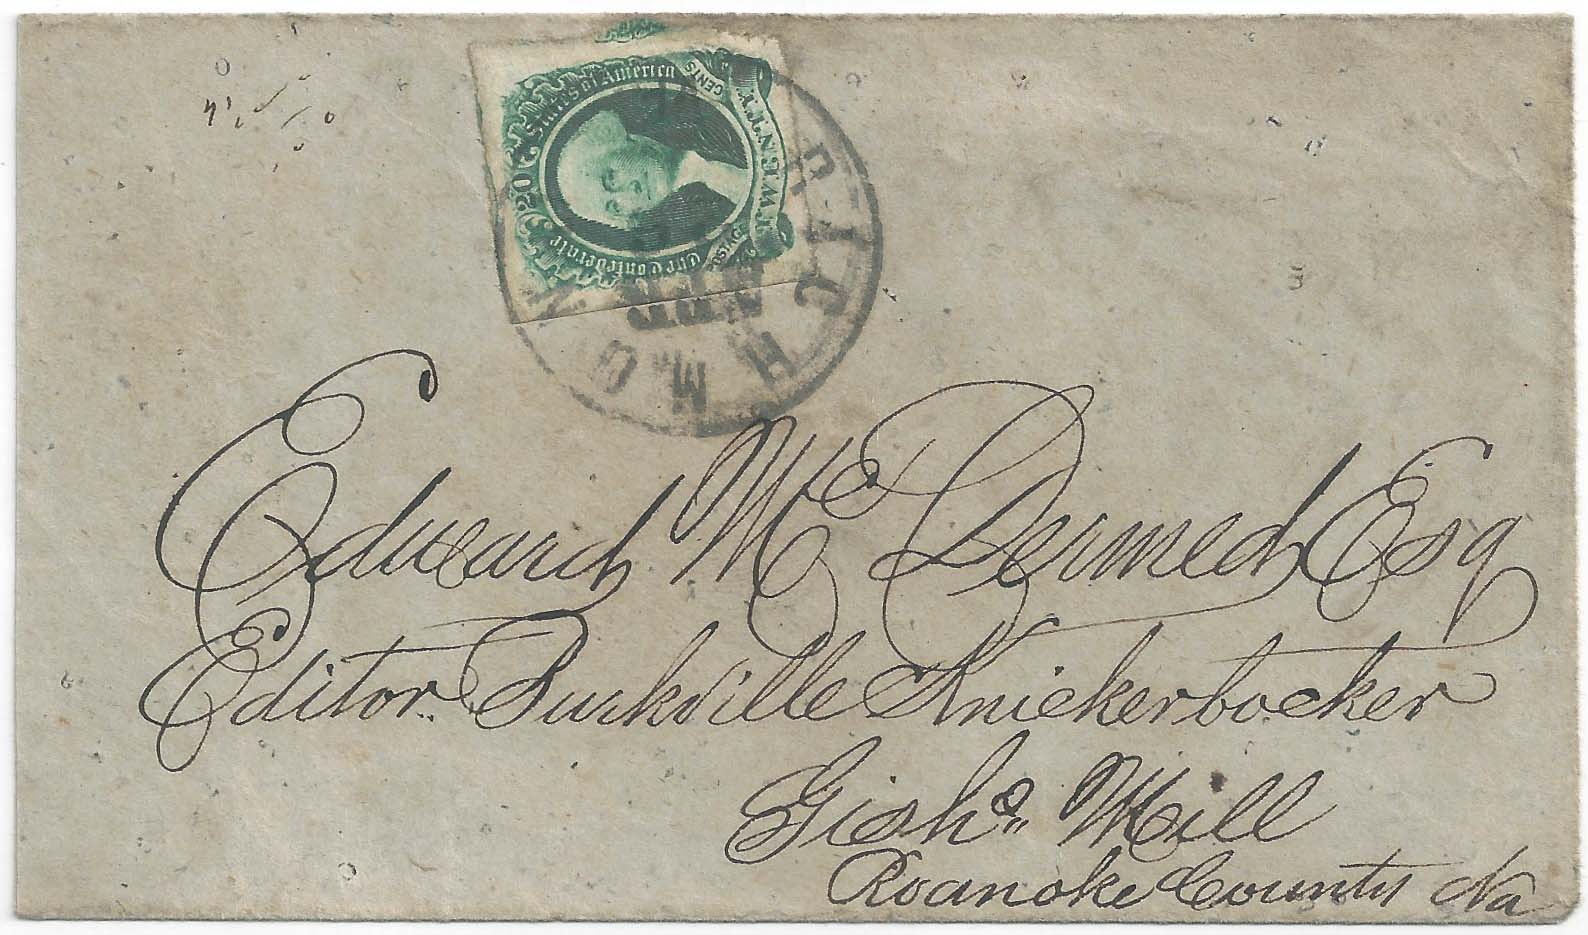 The Confederate States of America
20
CENTS
TWENTY
POSTAGE
RICHMON
APR
Edward McDermed Esq
Editor Burkville Knickerbocker
Gish's Mill
Roanoke County Va